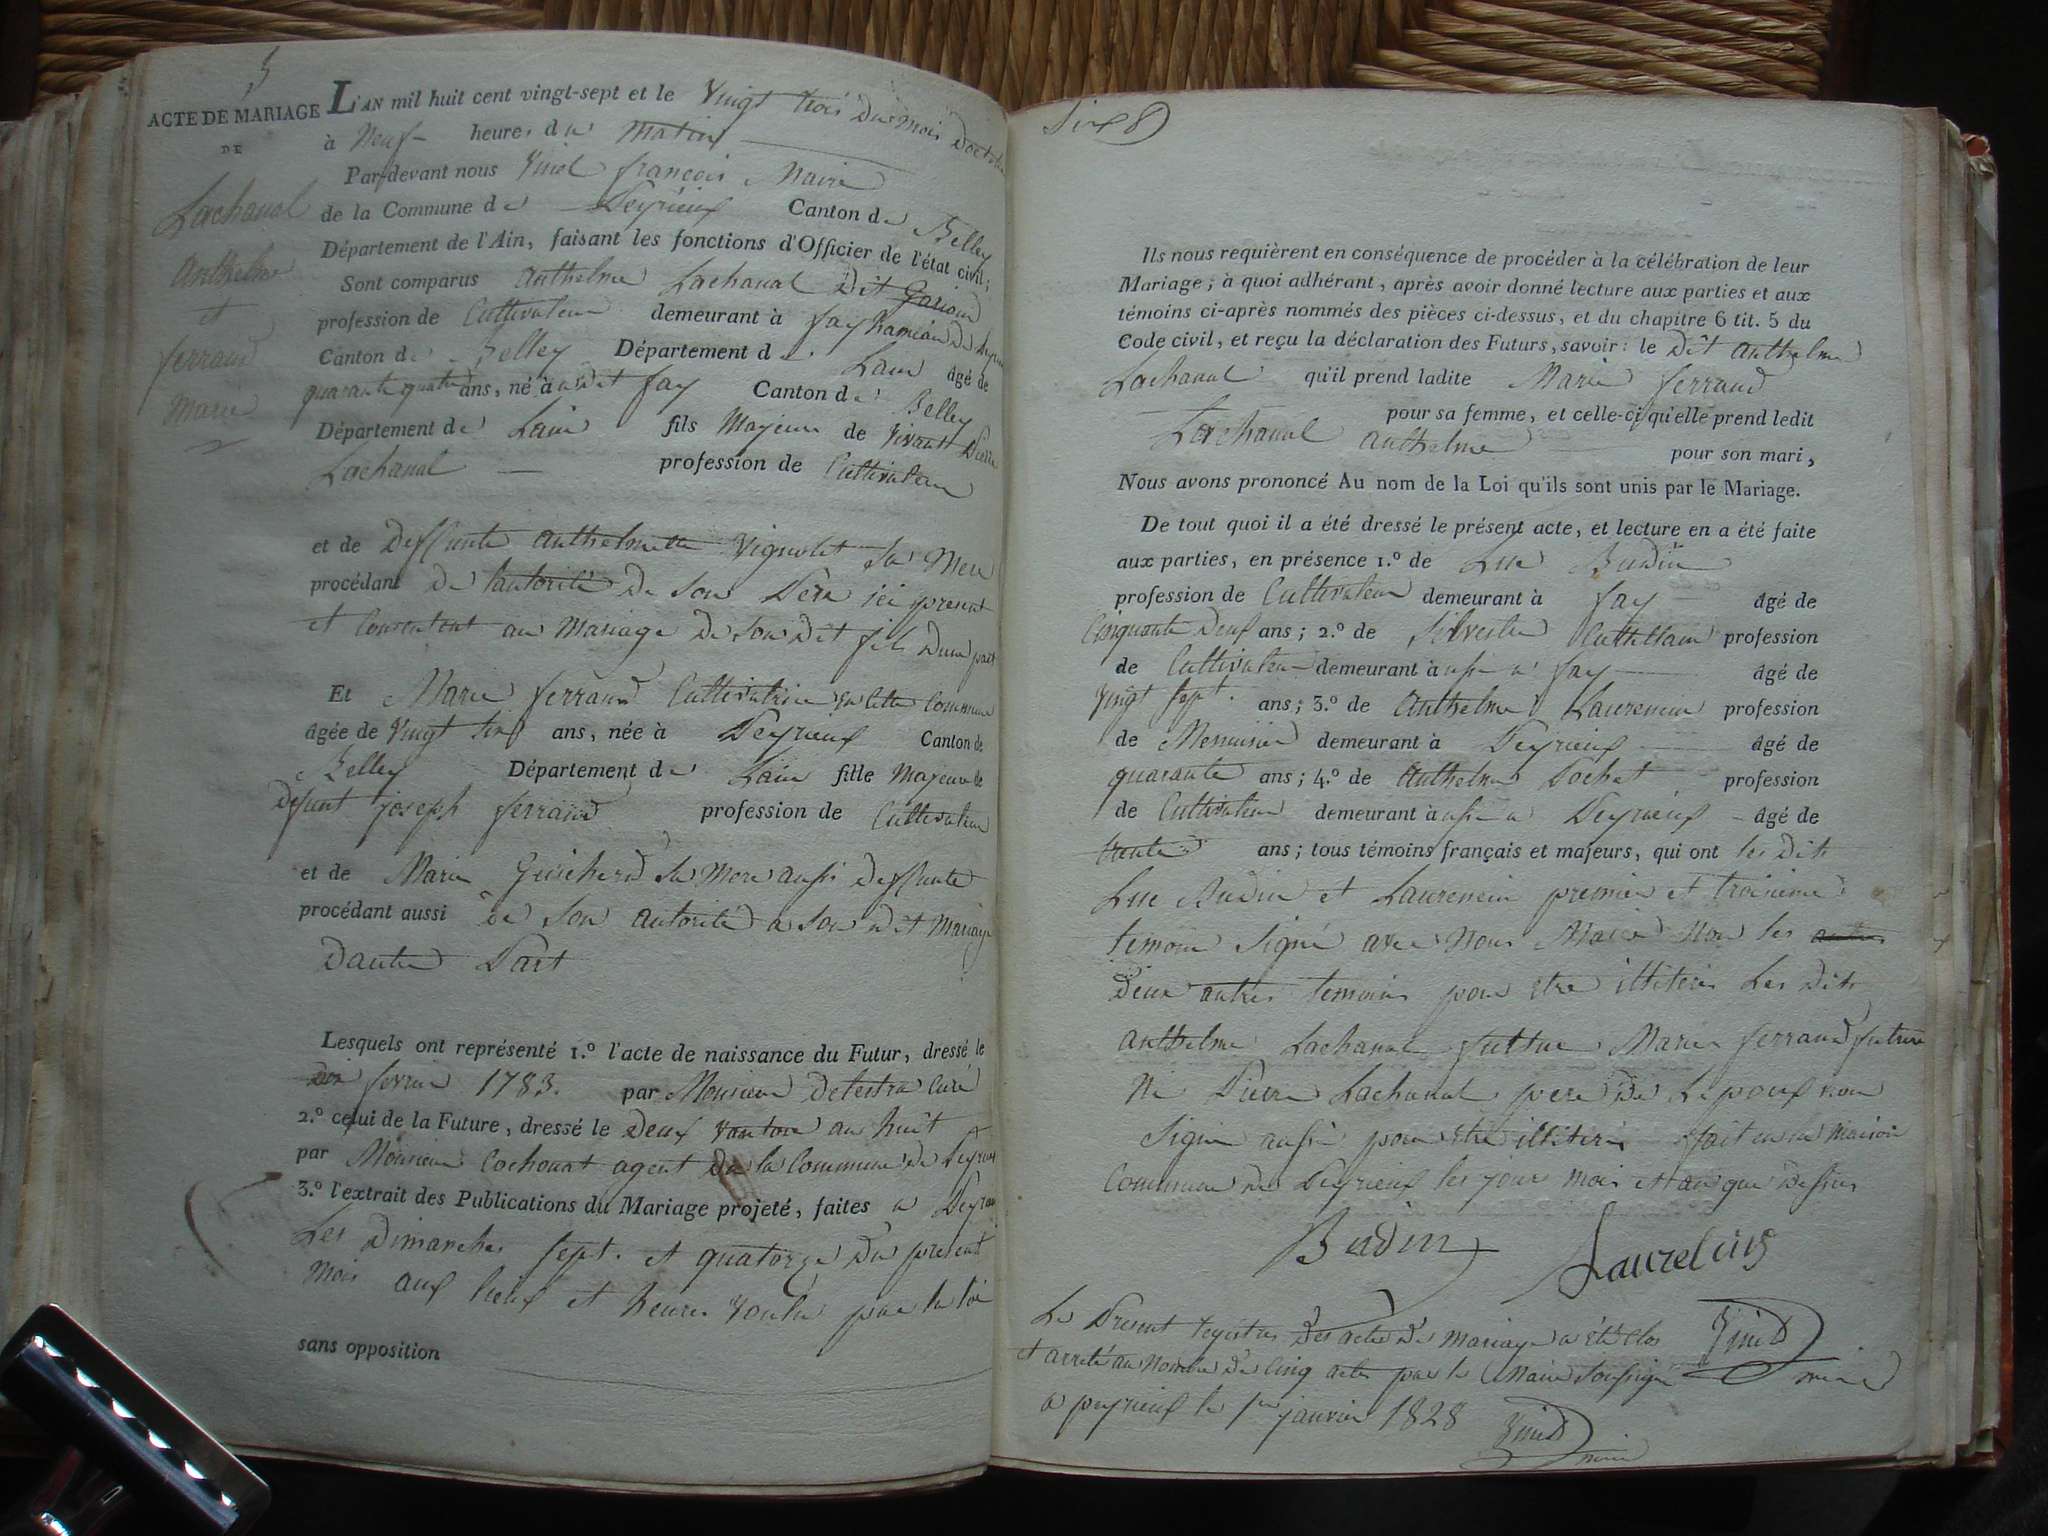 5
ACTE DE MARIAGE
DE
Lachanal
Anthelme
et
ferrand
Marie
L'AN mil huit cent vingt-sept et le Vingt trois Du mois Doctobre
à Neuf heures du Matin
Par-devant nous françois Maire
de la Commune de Peyrieux Canton de Belley
Département de l'Ain, faisant les fonctions d'Officier de l'état civil;
Sont comparus Anthelme Lachanal Dit
profession de Cultivateur demeurant à fay hameau de
Canton de Belley Département de Lain âgé de
quarante quatre ans, né audit fay Canton de Belley
Département de Lain fils Majeur de vivant Pierre
Lachanal profession de Cultivateur
et de Deffunte anthelmette Vignolet Sa Mere
procédant De lautorité De Son Pere ici present
et Consentent au Mariage De Son Dit fils Dune part
Et Marie ferrand Cultivatrice en Cette Commune
âgée de Vingt Six ans, née à Peyrieux Canton de
Belley Département de Lain fille Majeure de
Defunt joseph ferrand profession de Cultivateur
et de Marie Guicherd Sa Mere aussi Deffunte
procédant aussi de Son autorité a Son dit Mariage
Dautre Part
Lesquels ont représenté 1.º l'acte de naissance du Futur, dressé le
Dix fevrier 1783. par Monsieur Delestra Curé
2.º celui de la Future, dressé le Deux Vantose an huit
par Monsieur Cochonat agent De la Commune de Peyrieux
3.º l'extrait des Publications du Mariage projeté, faites a Peyrieux
Les Dimanches Sept. et quatorze Du present
Mois aux lieux et heures Voulus par la loi
sans opposition
Ils nous requièrent en conséquence de procéder à la célébration de leur
Mariage; à quoi adhérant, après avoir donné lecture aux parties et aux
témoins ci-après nommés des pièces ci-dessus, et du chapitre 6 tit. 5 du
Code civil, et reçu la déclaration des Futurs, savoir: le Dit anthelme
Lachanal qu'il prend ladite Marie ferrand
pour sa femme, et celle-ci qu'elle prend ledit
Lachanal anthelme pour son mari,
Nous avons prononcé Au nom de la Loi qu'ils sont unis par le Mariage.
De tout quoi il a été dressé le présent acte, et lecture en a été faite
aux parties, en présence 1.º de Luc Budin
profession de Cultivateur demeurant à fay âgé de
Cinquante Deux ans; 2.º de Silvestre profession
de Cultivateur demeurant à ussi a fay âgé de
Vingt Sept. ans; 3.º de Anthelme Laurencin profession
de Menuisier demeurant à Peyrieux âgé de
quarante ans; 4.º de Anthelme Pochet profession
de Cultivateur demeurant à ussi a Peyrieux âgé de
trente ans; tous témoins français et majeurs, qui ont les Dits
Luc Budin et Laurencin premier et troisieme
temoin Signé avec Nous Maire Non les autres
Deux autres temoins pour etre illiteris Les Dits
anthelme Lachanal futtur Marie ferrand future
Ni Pierre Lachanal pere De Lepoux non
Signé aussi pour etre illiteris fait en la Maison
Commune de Peyrieux les jour mois et an que Dessus
Budin
Laurelcins
Le Present registre Des actes De Mariage a été Clos
et arreté au Nombre De Cinq actes par le Maire Soussigné
maire
a peyrieux le 1er janvier 1828
maire